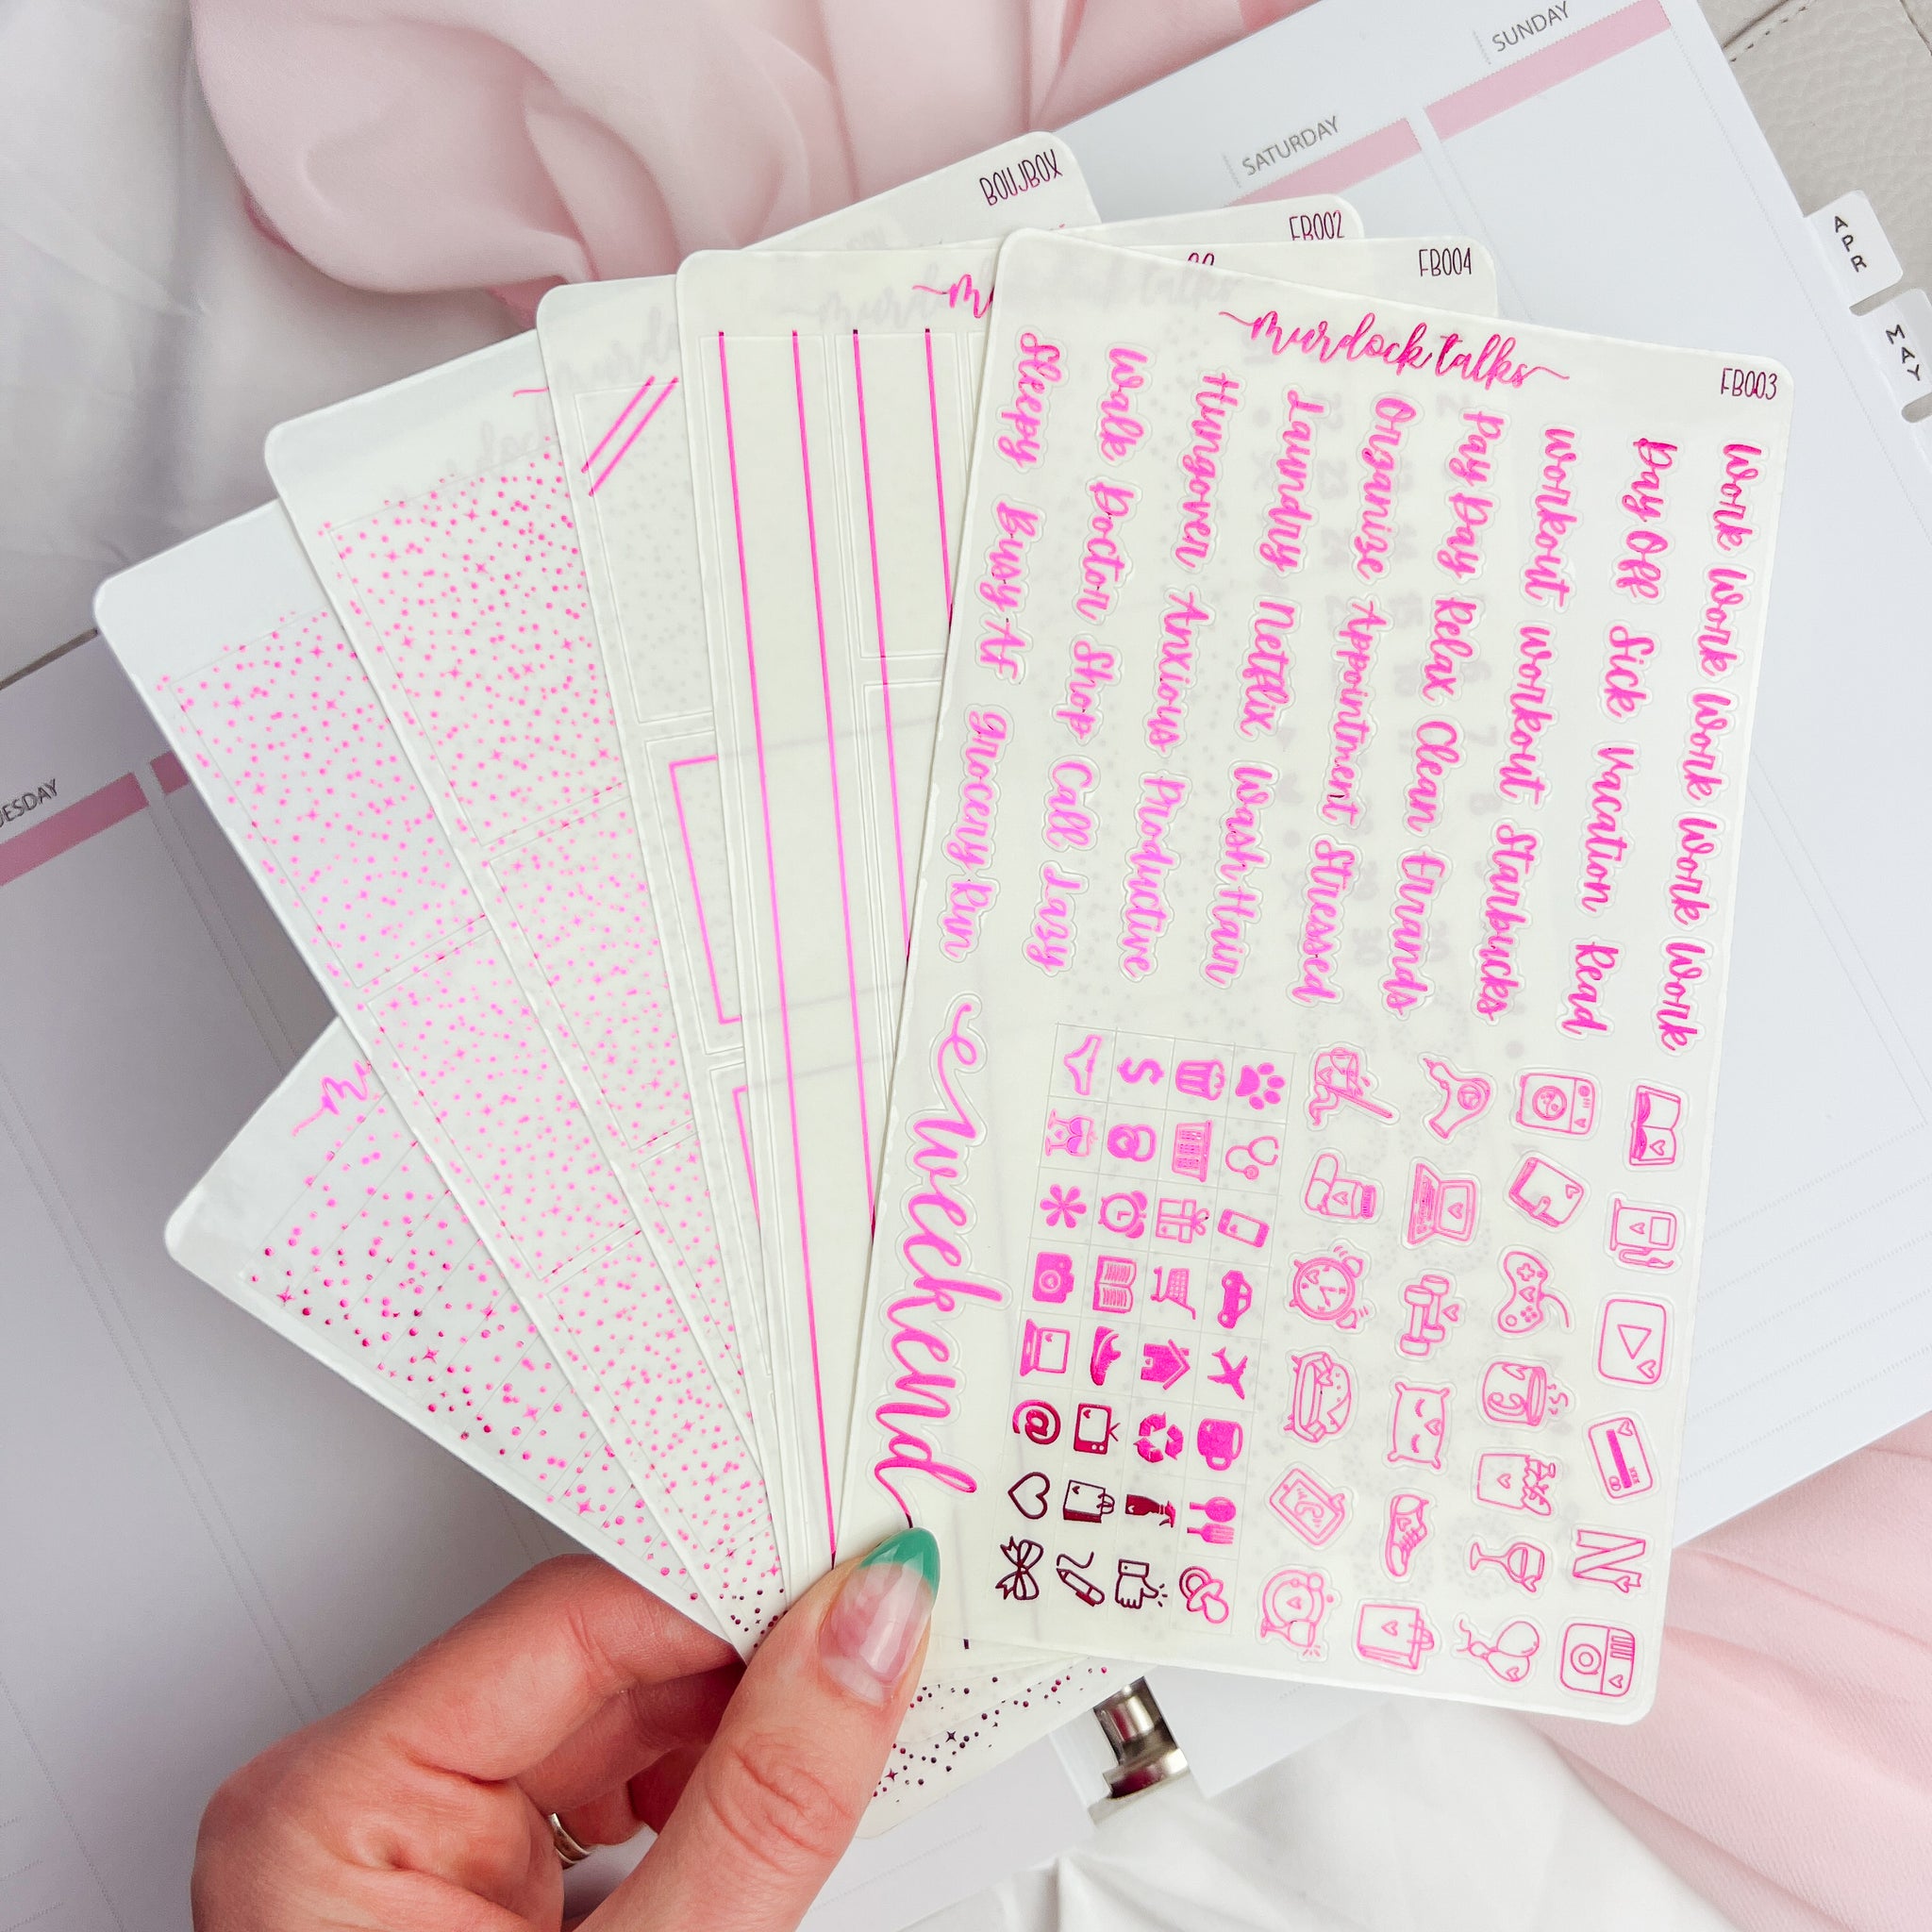 SUNDAY
SATURDAY
APR
MAY
BOUJBOX
FB002
FB004
murdock talks
FB003
Work Work Work Work Work
Day Off Sick Vacation Read
Workout Workout Starbucks
Pay Day Relax Clean Errands
Organize Appointment Stressed
Laundry Netflix Wash Hair
Hungover Anxious Productive
Walk Doctor Shop Call Lazy
Sleepy Busy AF Grocery Run
weekend
$
@
N